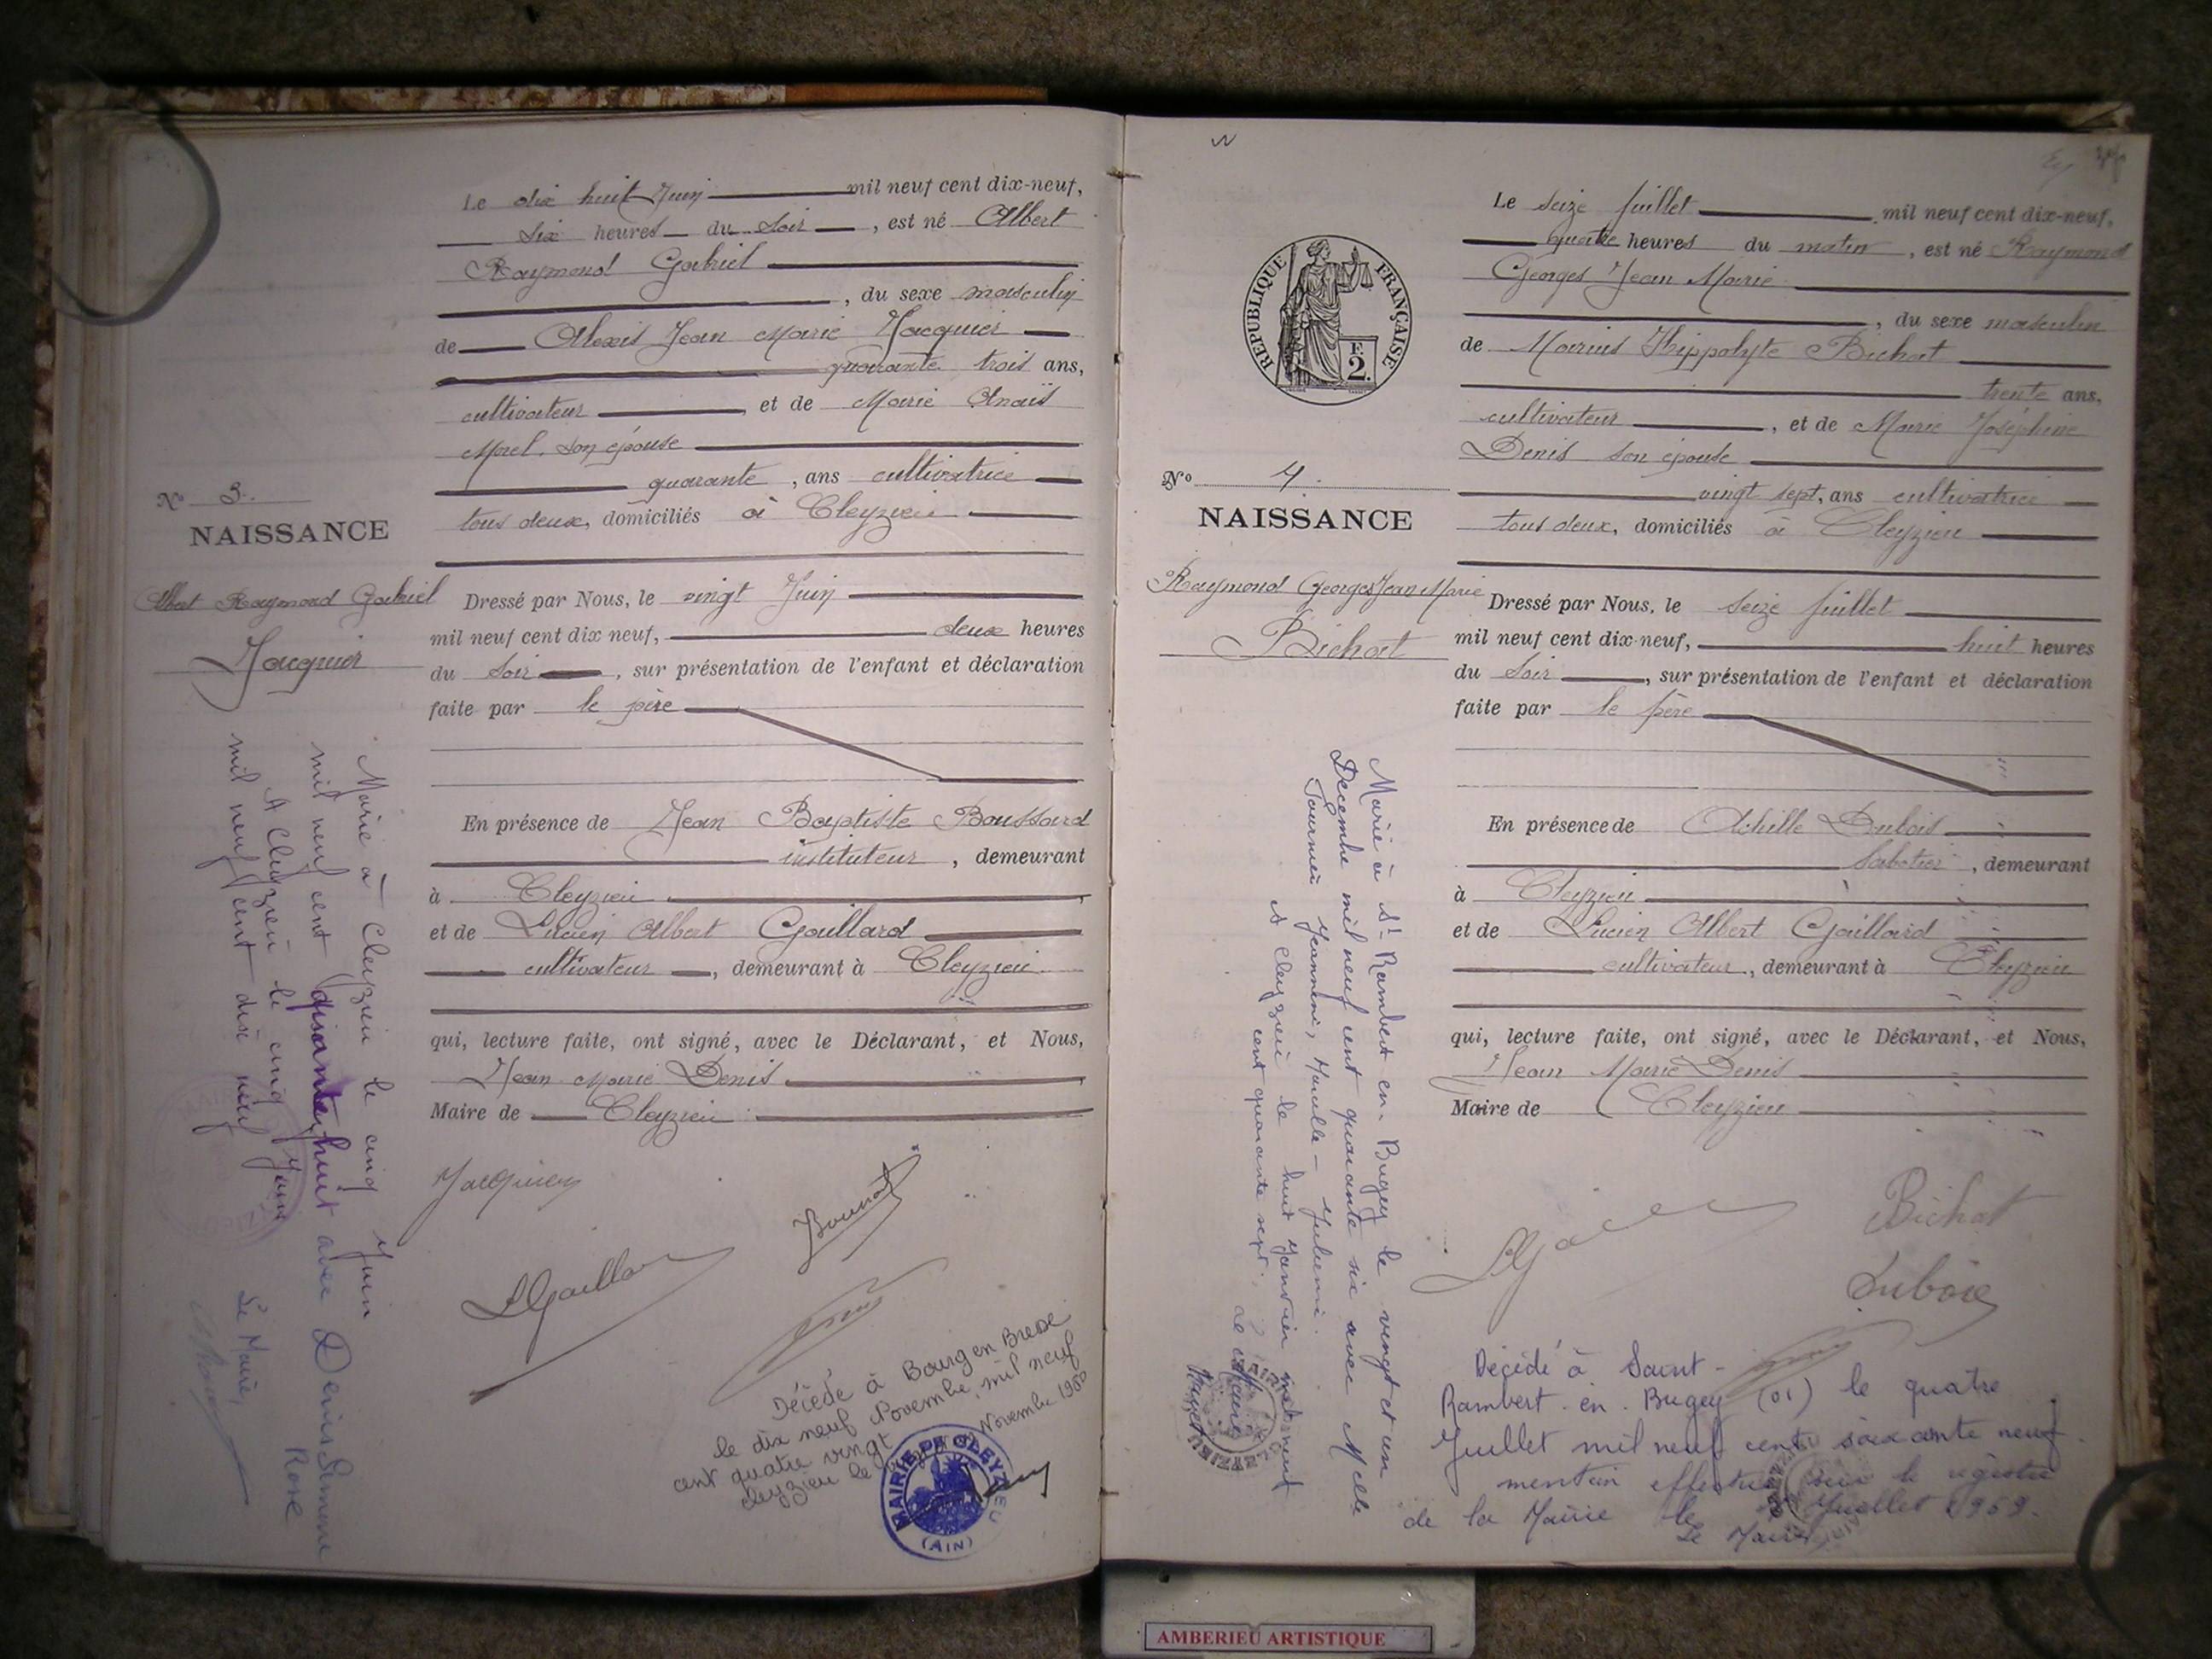 Le dix huit Juin mil neuf cent dix-neuf,
six heures du soir, est né Albert
Raymond Gabriel
, du sexe masculin
de Alexis Jean Marie Jacquier
quarante trois ans,
cultivateur et de Marie Anaïs
Morel, son épouse
quarante, ans cultivatrice
tous deux, domiciliés à Cleyzieu
No 3.
NAISSANCE
Albert Raymond Gabriel
Jacquier
Dressé par Nous, le vingt Juin
mil neuf cent dix neuf, deux heures
du soir, sur présentation de l'enfant et déclaration
faite par le père
En présence de Jean Baptiste Boussard
instituteur, demeurant
à Cleyzieu
et de Lucien Albert Gaillard
cultivateur, demeurant à Cleyzieu
qui, lecture faite, ont signé, avec le Déclarant, et Nous,
Jean Marie Denis
Maire de Cleyzieu
Jacquier
LGaillard
Marié à Cleyzieu le cinq Juin
mil neuf cent avec Denis
Rose
A Cleyzieu le cinq Juin
mil neuf cent dix neuf
Le Maire,
Décédé à Bourg en Bresse
le dix neuf Novembre, mil neuf
cent quatre vingt
Cleyzieu le Novembre 1980
MAIRIE DE CLEYZIEU
(AIN)
Le seize Juillet mil neuf cent dix-neuf,
quatre heures du matin, est né Raymond
Georges Jean Marie
, du sexe masculin
de Marius Hippolyte Bichat
trente ans,
cultivateur, et de Marie Joséphine
Denis son épouse
vingt sept, ans cultivatrice
tous deux, domiciliés à Cleyzieu
REPUBLIQUE FRANÇAISE
F.
2.
No 4.
NAISSANCE
Raymond Georges Jean Marie
Bichat
Dressé par Nous, le seize Juillet
mil neuf cent dix-neuf, huit heures
du soir, sur présentation de l'enfant et déclaration
faite par le père
En présence de Achille Dubois
sabotier, demeurant
à Cleyzieu
et de Lucien Albert Gaillard
cultivateur, demeurant à Cleyzieu
qui, lecture faite, ont signé, avec le Déclarant, et Nous,
Jean Marie Denis
Maire de Cleyzieu
Bichat
Dubois
Marié à St Rambert en-Bugey le vingt et un
Decembre mil neuf cent quarante six avec Melle
Tournier
A Cleyzieu le huit Janvier mil neuf
cent quarante sept.
Le Maire
Décédé à Saint-
Rambert. en. Bugey (01) le quatre
Juillet mil neuf cent soixante neuf.
mention effectuée sur le registre
de la Mairie le Juillet 1969.
Le Maire,
AMBERIEU ARTISTIQUE